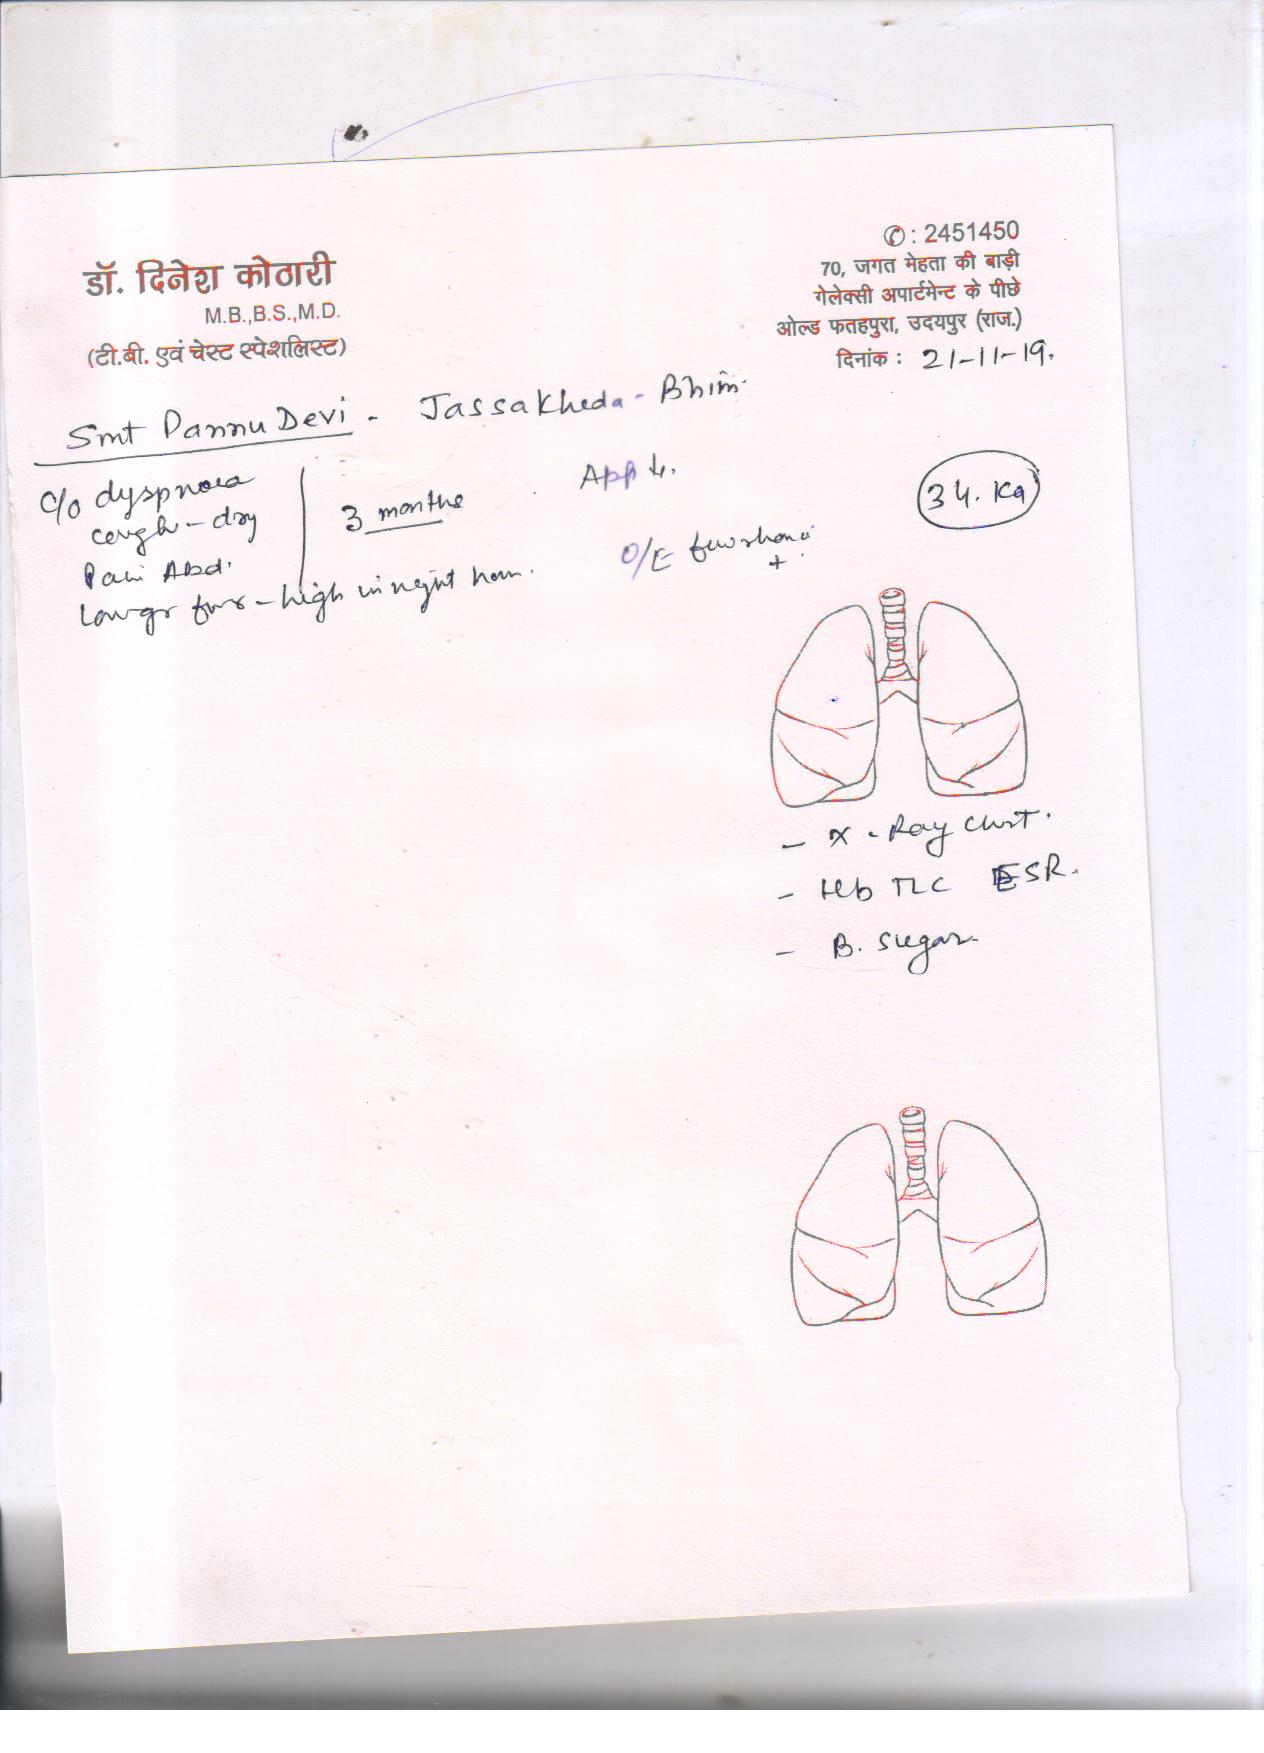 ✆ : 2451450
डॉ. दिनेश कोठारी
M.B.,B.S.,M.D.
(टी.बी. एवं चेस्ट स्पेशलिस्ट)
70, जगत मेहता की बाड़ी
गेलेक्सी अपार्टमेन्ट के पीछे
ओल्ड फतहपुरा, उदयपुर (राज.)
दिनांक : 21-11-19.
Smt Pannu Devi - Jassakheda - Bhim.
C/o dyspnoea
cough - dry
Pain Abd.
3 months
App ↓.
34. Kg
O/E few rhonchi
+
- high in night
- X-Ray Chest.
- Hb TLC ESR.
- B. Sugar